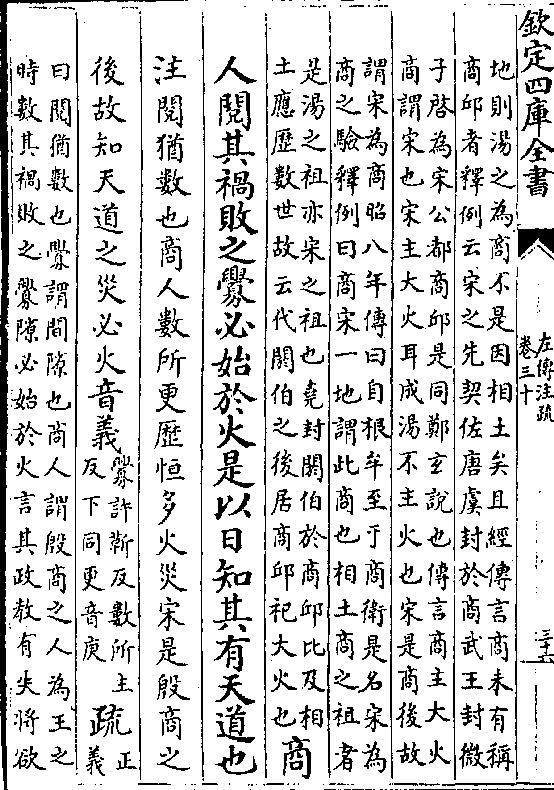 欽定四庫全書
左傳注疏
卷三十
三十五
地則湯之為商不是因相土矣且經傳言商未有稱
商邱者釋例云宋之先契佐唐虞封於商武王封微
子啓為宋公都商邱是同鄭玄說也傳言商主大火
商謂宋也宋主大火耳成湯不主火也宋是商後故
謂宋為商昭八年傳曰自根牟至于商衛是名宋為
商之驗釋例曰商宋一地謂此商也相土商之祖者
是湯之祖亦宋之祖也堯封閼伯於商邱比及相
土應歷數世故云代閼伯之後居商邱祀大火也
商
人閱其禍敗之釁必始於火是以日知其有天道也
注閱猶數也商人數所更歷恒多火災宋是殷商之
後故知天道之災必火音義
釁許靳反數所主
反下同更音庚
疏
正
義
曰閱猶數也釁謂間隙也商人謂殷商之人為王之
時數其禍敗之釁隙必始於火言其政教有失將欲